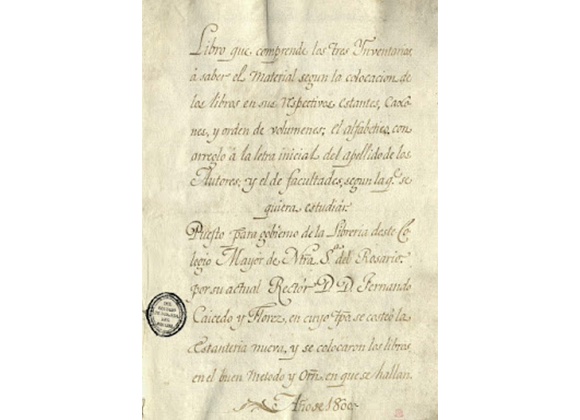 Libro que comprende los tres Inventarios
á saber el Material segun la colocacion de
los libros en sus respectivos estantes, Caxo
nes, y orden de volumenes; el alfabetico, con
arreglo á la letra inicial del apellido de los
Autores; y el de facultades, segun la q.e se
quiera estudiar.
Puesto para gobierno de la Libreria deste Co
legio Mayor de Ntra S.ra del Rosario:
por su actual Rector D. D. Fernando
Caicedo y Florez, en cuyo tpo se costeó la
Estanteria nueva, y se colocaron los libros
en el buen Metodo y Orn. en que se hallan.
Año de 1800